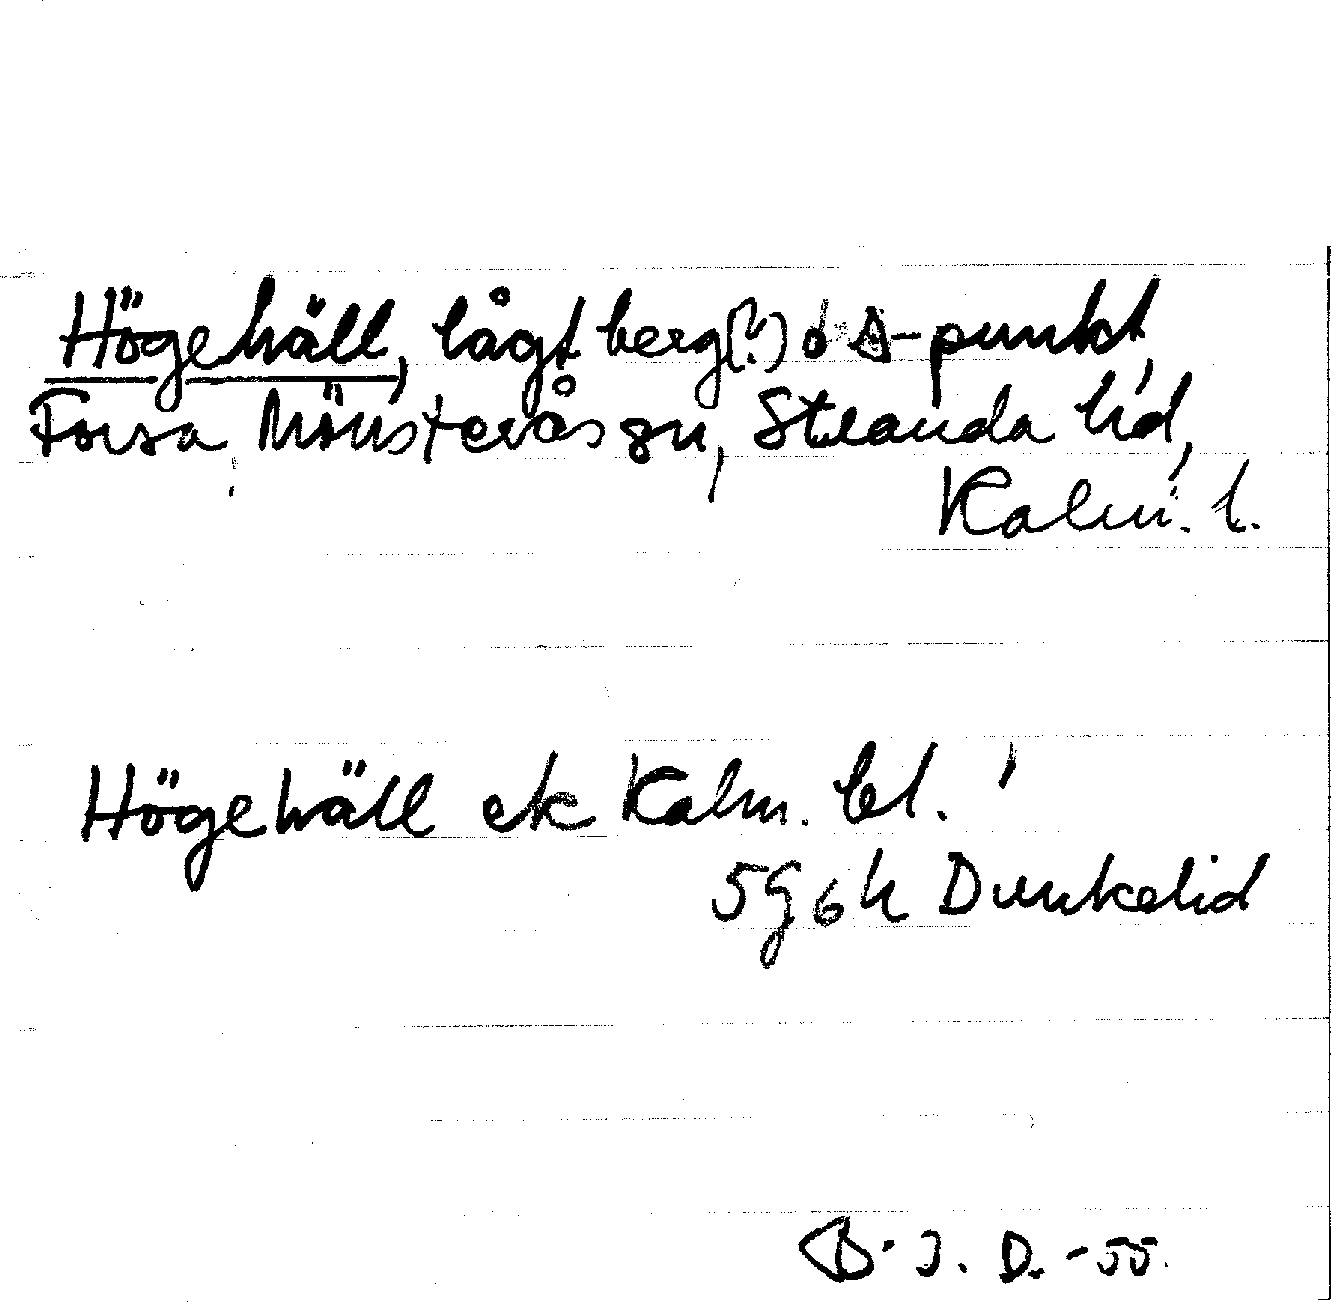 Högehäll, lågt berg(?) o Δ-punkt,
Forsa, Mönsterås sn, Stranda hd,
Kalm. l.
Högehäll ek Kalm. bl.
5G6h Dunkelid
B. J. D. -55.